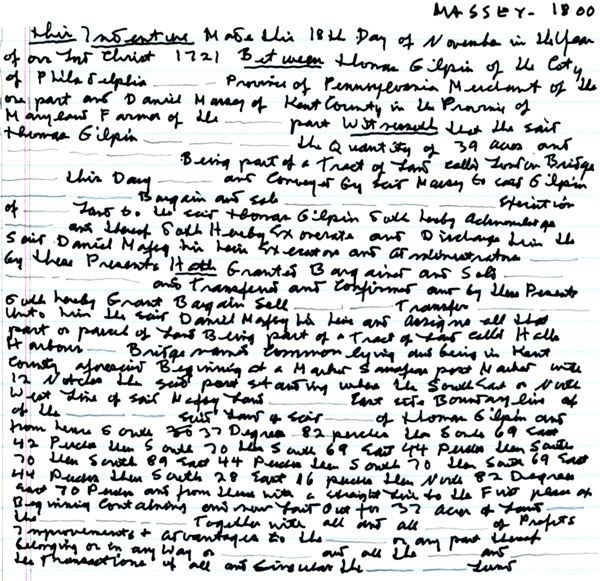 MASSEY- 1800
This Indenture Made this 18th Day of November in the Year
of our Lord Christ 1721 Between Thomas Gilpin of the City
of Philadelphia Province of Pennsylvania Merchant of the
one part and Daniel Massey of Kent County in the Province of
Maryland Farmer of the part Witnesseth that the said
Thomas Gilpin the Quantity of 39 acres and
Being part of a Tract of Land called London Bridge
this Day and Conveyed by said Massey to said Gilpin
Bargain and sale Execution
of Land to the said Thomas Gilpin doth hereby Acknowledge
and thereof doth Hereby Exonerate and Discharge him the
Said Daniel Massey his heirs Executors and Administrators
by these Presents Hath Granted Bargained and Sold
and Transferred and Confirmed and by these Presents
doth hereby Grant Bargain Sell Transfer
Unto him the said Daniel Massey his heirs and Assigns all that
part or parcel of Land Being part of a Tract of Land called Halls
Harbour Bridge named Common lying and being in Kent
County aforesaid Beginning at a Marked Sassafras post Marked with
12 Notches the said post standing where the South East or North
West Line of said Massey Land East side Boundary line of
of the said Land of said of Thomas Gilpin and
from hence South 37 Degrees 82 perches then South 69 East
42 Perches then South 70 then South 69 East 44 Perches then South
70 then South 89 East 44 Perches then South 70 then South 69 East
44 Perches then South 28 East 16 perches then North 82 Degrees
East 70 Perches and from thence with a straight line to the First place of
Beginning Containing and now Laid Out for 37 acres of Land
the Together with all and all of Profits
Improvements & advantages to the or any part thereof
belonging or in any Way or and all the and
the Transactions of all and Singular the Land